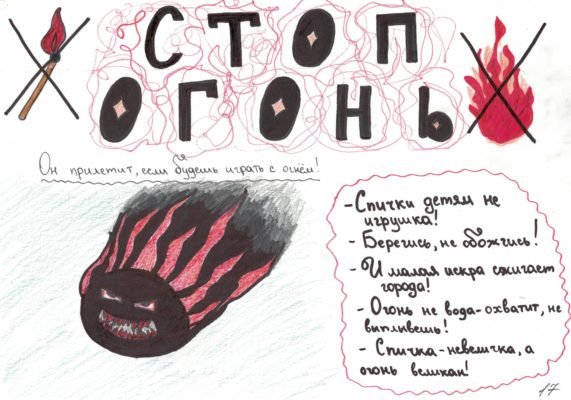 СТОП
ОГОНЬ
Он прилетит, если будешь играть с огнём!
- Спички детям не
игрушка!
- Берегись, не обожгись!
- И малая искра сжигает
города!
- Огонь не вода - охватит, не
выплывешь!
- Спичка-невеличка, а
огонь великан!
17